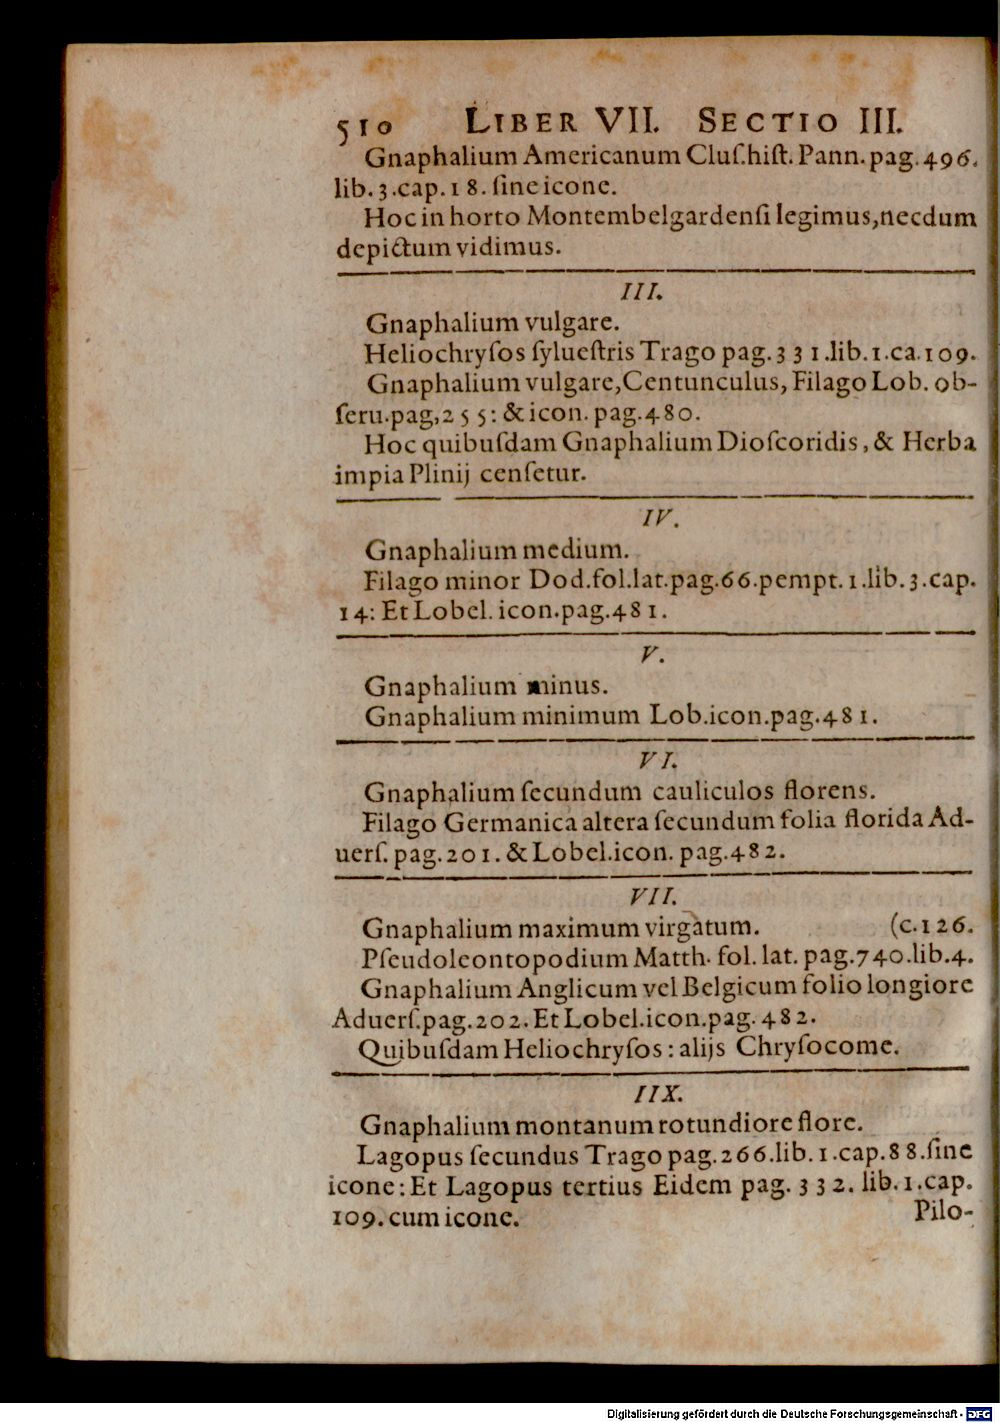 510 LIBER VII. SECTIO III.
Gnaphalium Americanum Cluſ.hiſt. Pann. pag. 496.
lib. 3.cap. 18. ſine icone.
Hoc in horto Montembelgardenſi legimus, necdum
depictum vidimus.
III.
Gnaphalium vulgare.
Heliochryſos ſylueſtris Trago pag. 331.lib.1.ca.109.
Gnaphalium vulgare, Centunculus, Filago Lob. ob-
ſeru.pag, 255: & icon. pag. 480.
Hoc quibuſdam Gnaphalium Dioſcoridis, & Herba
impia Plinij cenſetur.
IV.
Gnaphalium medium.
Filago minor Dod.fol.lat.pag.66.pempt. 1.lib. 3.cap.
14: Et Lobel. icon.pag.481.
V.
Gnaphalium minus.
Gnaphalium minimum Lob.icon.pag.481.
VI.
Gnaphalium ſecundum cauliculos florens.
Filago Germanica altera ſecundum folia florida Ad-
uerſ. pag. 201. & Lobel.icon. pag. 482.
VII.
Gnaphalium maximum virgatum. (c.126.
Pſeudoleontopodium Matth. fol. lat. pag.740.lib.4.
Gnaphalium Anglicum vel Belgicum folio longiore
Aduerſ.pag.202. Et Lobel.icon.pag. 482.
Quibuſdam Heliochryſos: alijs Chryſocome.
IIX.
Gnaphalium montanum rotundiore flore.
Lagopus ſecundus Trago pag. 266.lib. 1.cap.88.ſine
icone: Et Lagopus tertius Eidem pag. 332. lib. 1.cap.
109. cum icone.
Pilo-
Digitalisierung gefördert durch die Deutsche Forschungsgemeinschaft - DFG